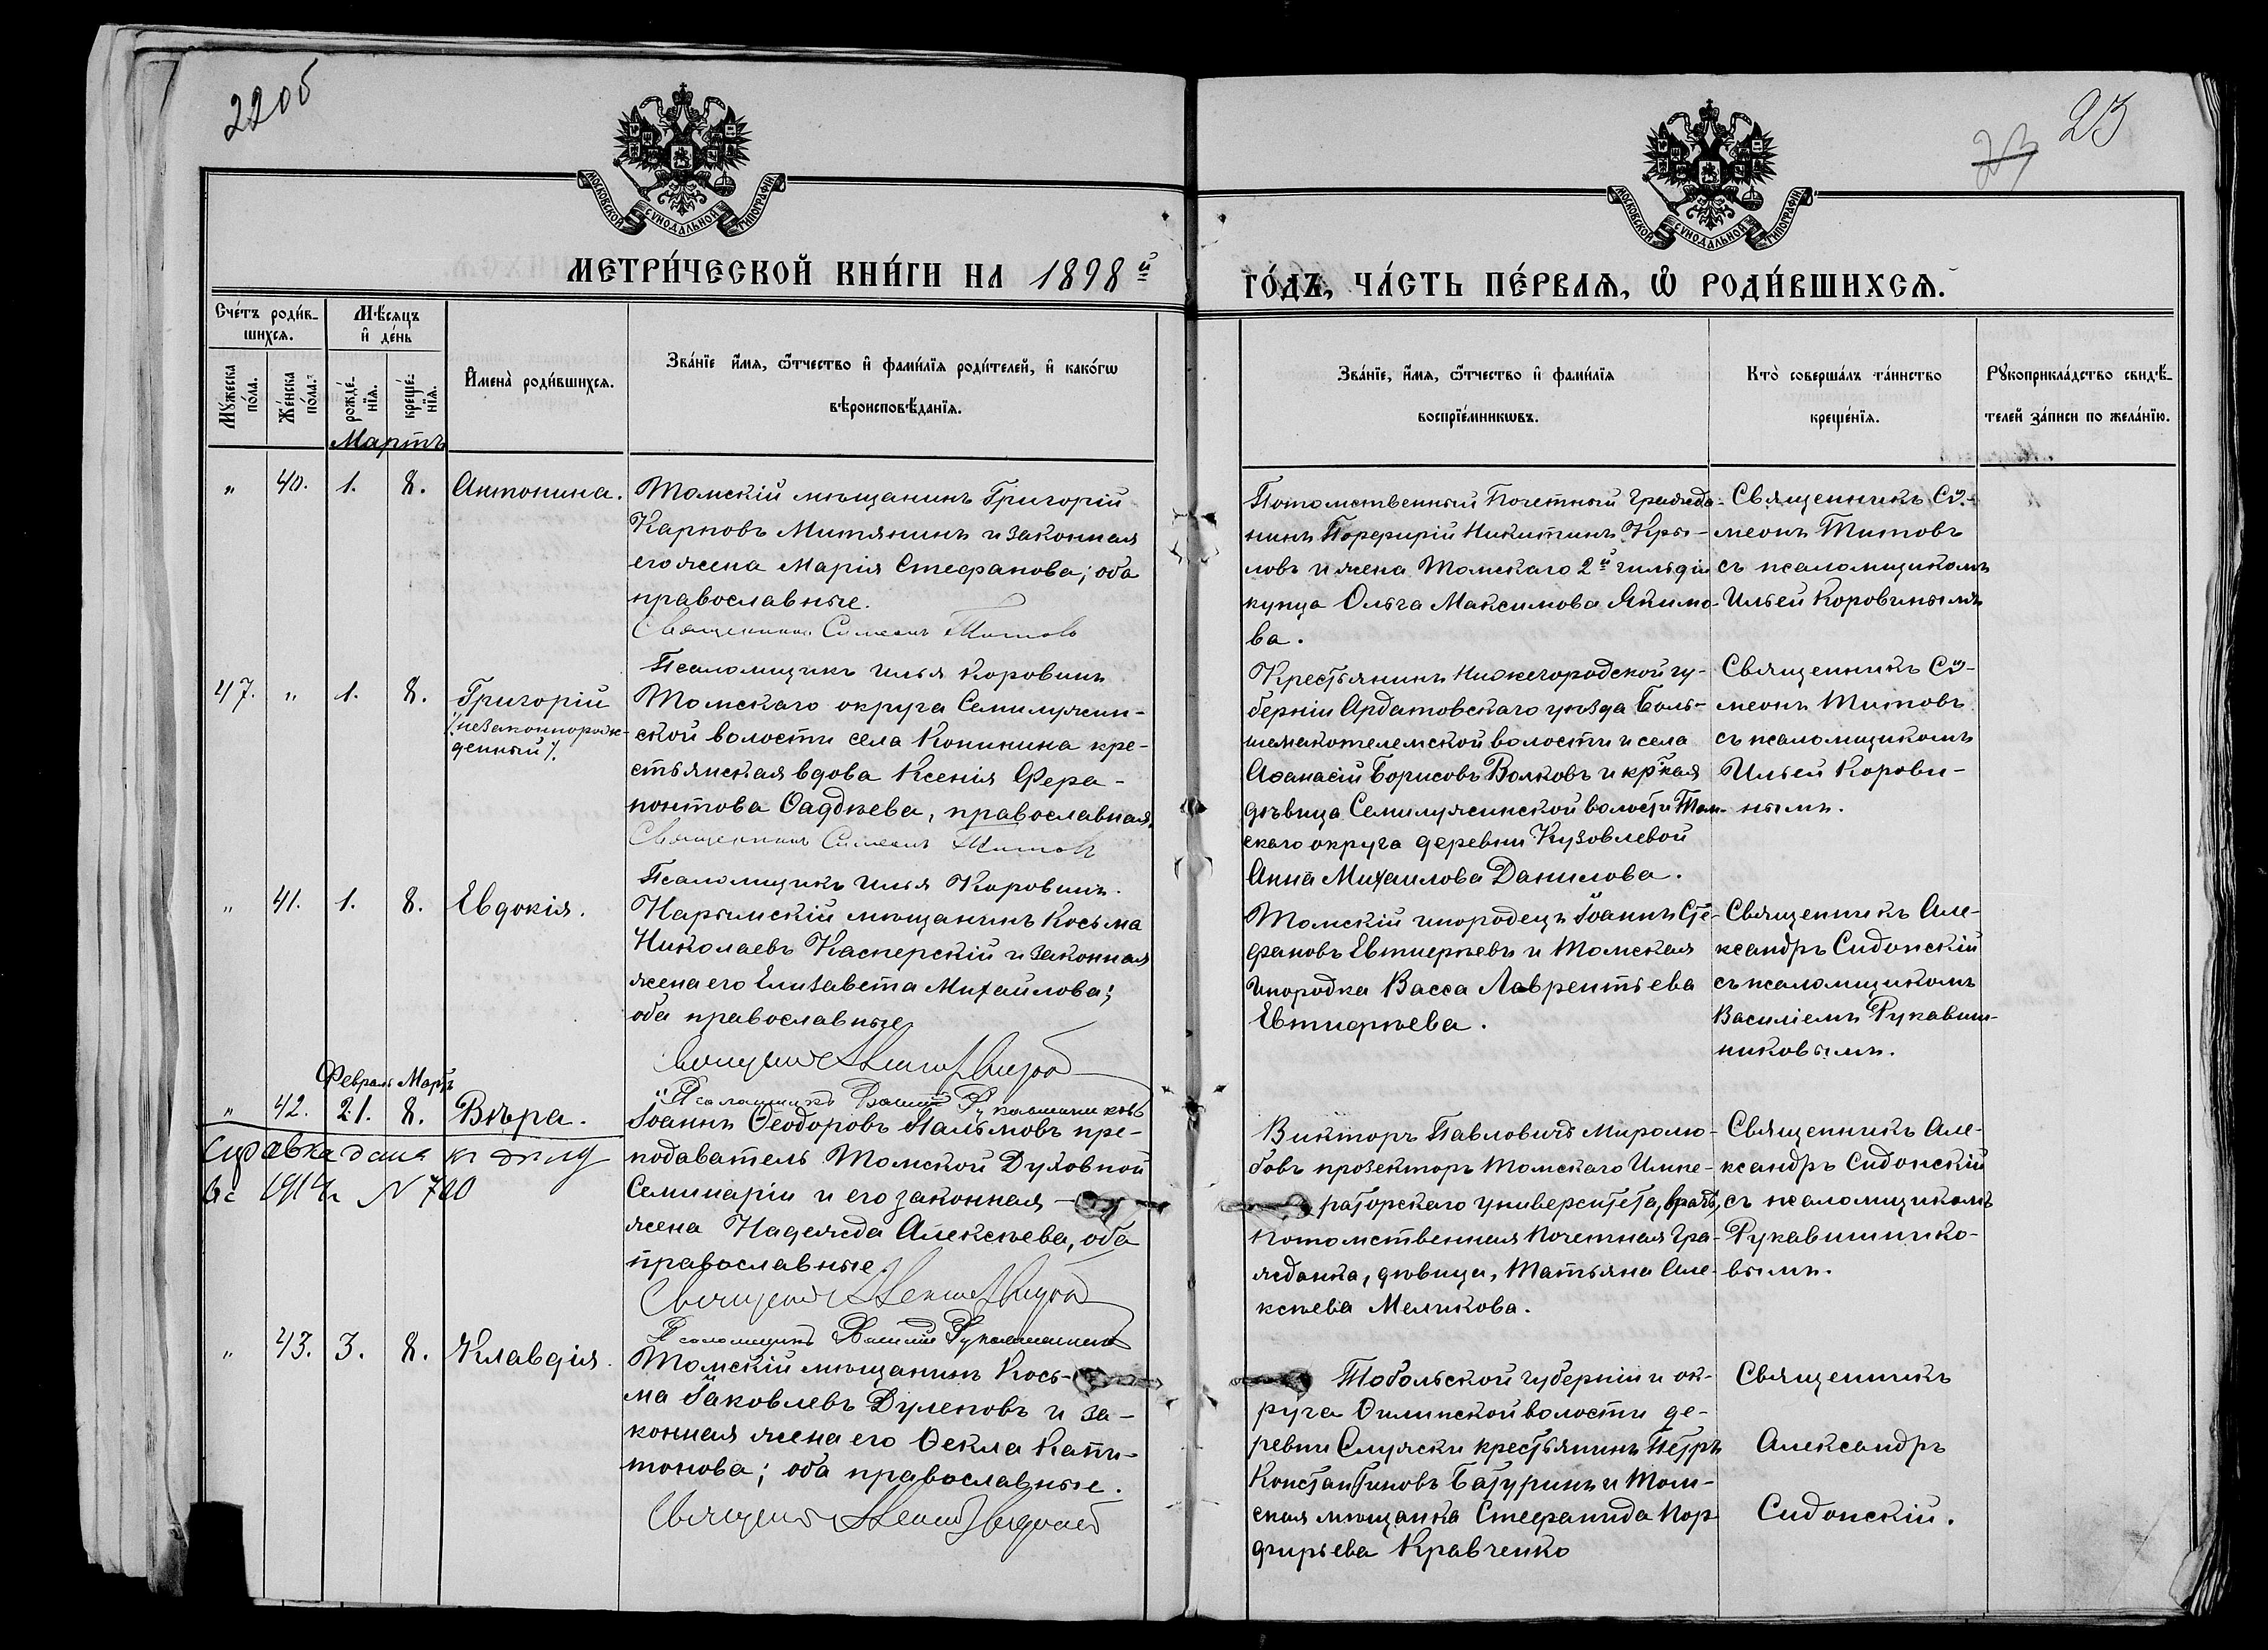 22об
23
23
МОСКОВСКОЙ СѴНОДАЛЬНОЙ ТИПОГРАФІИ
МОСКОВСКОЙ СѴНОДАЛЬНОЙ ТИПОГРАФІИ
МЕТРИ́ЧЕСКОЙ КНИ́ГИ НА 1898й
ГО́ДЪ, ЧА́СТЬ ПЕ́РВАѦ, Ѡ҆ РОДИ́ВШИХСѦ.
Сче́тъ роди́в-
шихсѧ.
Мѣ́сѧцъ
и҆ де́нь
Мꙋ́жеска
по́ла.
Же́нска
по́ла.
рожде́-
нїѧ.
креще́-
нїѧ.
И҆мена̀ роди́вшихсѧ.
Зва́нїе и҆́мѧ, ѻ҆́тчество и҆ фами́лїѧ роди́телей, и҆ како́гѡ
вѣроисповѣ́данїѧ.
Зва́нїе, и҆́мѧ, ѻ҆́тчество и҆ фами́лїѧ
воспрїе́мникѡвъ.
Кто̀ соверша́лъ та́инство
креще́нїѧ.
Рꙋкоприкла́дство свидѣ́-
телей за́писи по жела́нїю.
Мартъ
" 40. 1. 8. Антонина.
Томскій мѣщанинъ Григорій
Карповъ Митянинъ и законная
его жена Марія Стефанова; оба
православные.
Священникъ Симеонъ Титовъ
Псаломщикъ Илья Коровинъ
Потомственный Почетный Гражда-
нинъ Порфирій Никитинъ Кры-
ловъ и жена Томскаго 2й гильдіи
купца Ольга Максимова Якимо-
ва.
Священникъ Сѵ-
меонъ Титовъ
съ псаломщикомъ
Ильей Коровинымъ
47. " 1. 8. Григорій
(незаконнорож-
денный).
Томскаго округа Семилужин-
ской волости села Конинина кре-
стьянская вдова Ксенія Фера-
понтова Ѳаддѣева, православная.
Священникъ Симеонъ Титовъ
Псаломщикъ Илья Коровинъ.
Крестьянинъ Нижегородской гу-
берніи Ардатовскаго уѣзда Боль-
шемакателемской волости и села
Аѳанасій Борисовъ Волковъ и кр-кая
дѣвица Семилужинской волости Том-
скаго округа деревни Кузовлевой
Анна Михаилова Данилова.
Священникъ Сѵ-
меонъ Титовъ
съ псаломщикомъ
Ильей Корови-
нымъ.
" 41. 1. 8. Евдокія.
Нарымскій мѣщанинъ Косьма
Николаевъ Касперскій и законная
жена его Елизавета Михаилова;
оба православные
Священникъ
Псаломщикъ Василій Рукавишниковъ
Томскій инородецъ Іоаннъ Сте-
фановъ Евтифѣевъ и Томская
Инородка Васса Лаврентьева
Евтифѣева.
Священникъ Але-
ксандръ Сидонскій
съ псаломщикомъ
Василіемъ Рукавиш-
никовымъ.
Февраль Мартъ
" 42. 21. 8. Вѣра.
Справка дана къ дѣлу
за 1914г N 700
Іоаннъ Ѳеодоровъ Пальмовъ пре-
подаватель Томской Духовной
Семинаріи и его законная
жена Надежда Алексѣева, оба
православные.
Священникъ
Псаломщикъ Василій Рукавишниковъ
Викторъ Павловичъ Миролю-
бовъ прозекторъ Томскаго Импе-
раторскаго университета, врачъ,
потомственная почетная гра-
жданка, дѣвица, Татьяна Але-
ксѣева Меликова.
Священникъ Але-
ксандръ Сидонскій
съ псаломщикомъ
Рукавишнико-
вымъ.
" 43. 3. 8. Клавдія.
Томскій мѣщанинъ Кось-
ма Іаковлевъ Дулеповъ и за-
конная жена его Ѳекла Капи-
тонова; оба православные.
Священникъ
Тобольской губерніи и ок-
руга Филинской волости де-
ревни Служски крестьянинъ Петръ
Константиновъ Батуринъ и Том-
ская мѣщанка Стефанида Пор-
фирьева Кравченко
Священникъ
Александръ
Сидонскій.